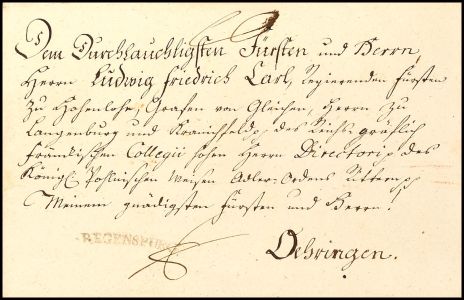 Dem Durchlauchtigsten Fürsten und Herrn,
Herrn Ludwig Friedrich Carl, Regierenden Fürsten
zu Hohenlohe, Grafen von Gleichen, Herrn zu
Langenburg und Kranichfeld p des Reichs gräflich
Fränkischen Collegii hohen Herrn Directori, des
Königl. Pohlnischen weisen Adler-Ordens Rittern p
Meinem gnädigsten Fürsten und Herrn!
REGENSPURG
Oehringen.